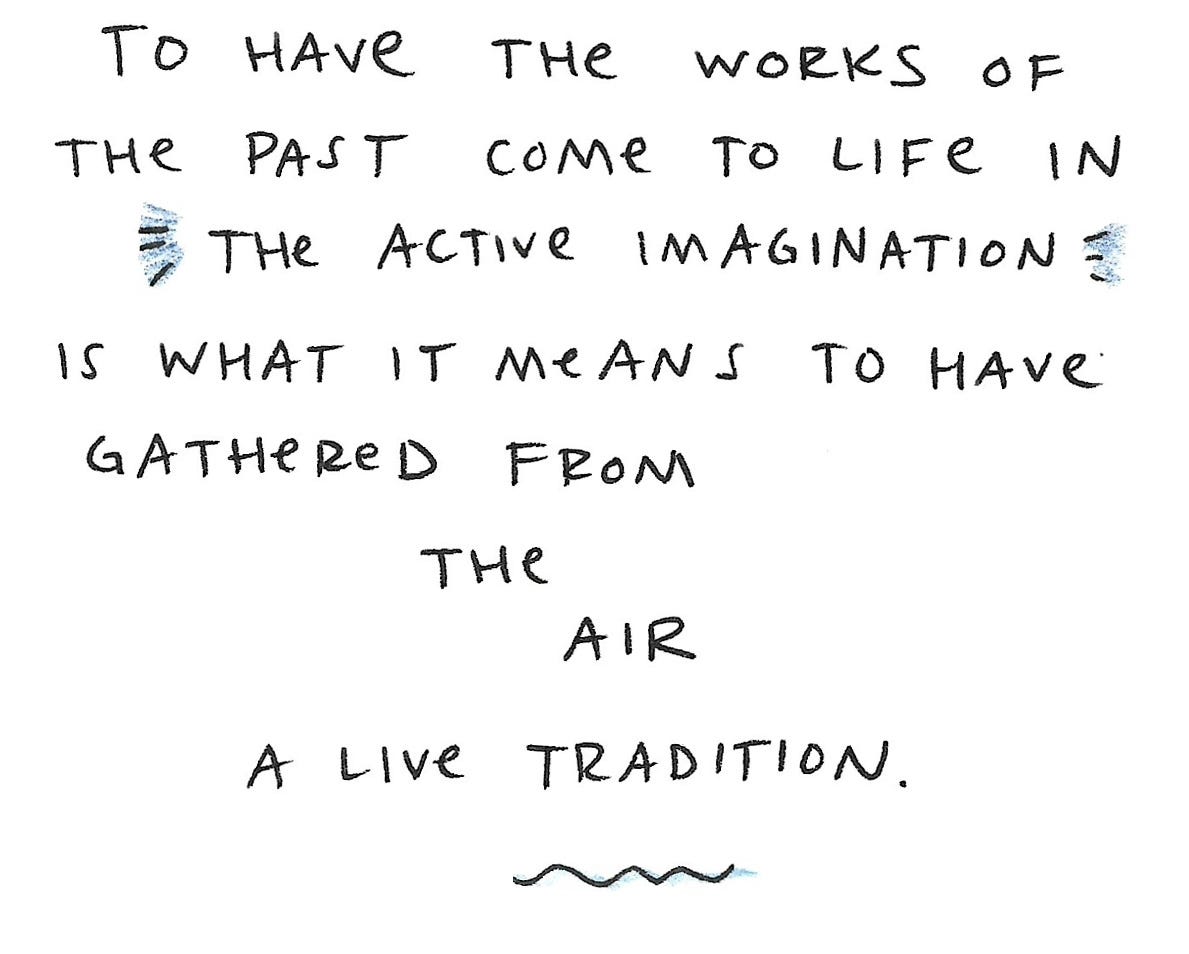 TO HAVe THe WORKS OF
THe PAST COMe TO LIFe IN
THe ACTIVe IMAGINATION
IS WHAT IT MeANS TO HAVe
GATHeReD FROM
THe
AIR
A LIVe TRADITION.